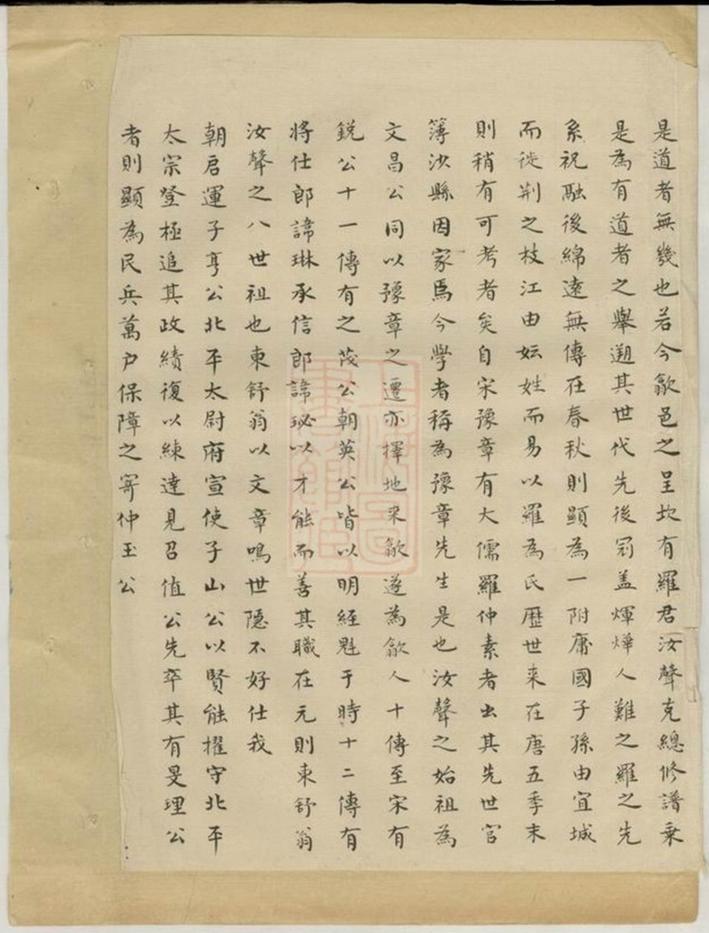 是道者無幾也若今歙邑之呈坎有羅君汝聲克總修譜乗
是為有道者之舉遡其世代先後冠盖煇煒人難之羅之先
系祝融後綿遠無傳在春秋則顯為一附庸國子孫由宜城
而徙荆之枝江由妘姓而易以羅為氏歷世来在唐五季末
則稍有可考者矣自宋豫章有大儒羅仲素者出其先世官
簿沙縣因家焉今學者稱為豫章先生是也汝聲之始祖為
文昌公同以豫章之遷亦擇地来歙遂為歙人十傳至宋有
鋭公十一傳有之茂公朝英公皆以明經魁于時十二傳有
將仕郎諱琳承信郎諱珌以才能而善其職在元則東舒翁
汝聲之八世祖也東舒翁以文章鳴世隠不好仕我
朝启運子亨公北平太尉府宣使子山公以賢能擢守北平
太宗登極追其政績復以練達見召值公先卒其有旻理公
者則顯為民兵萬户保障之寄仲玉公